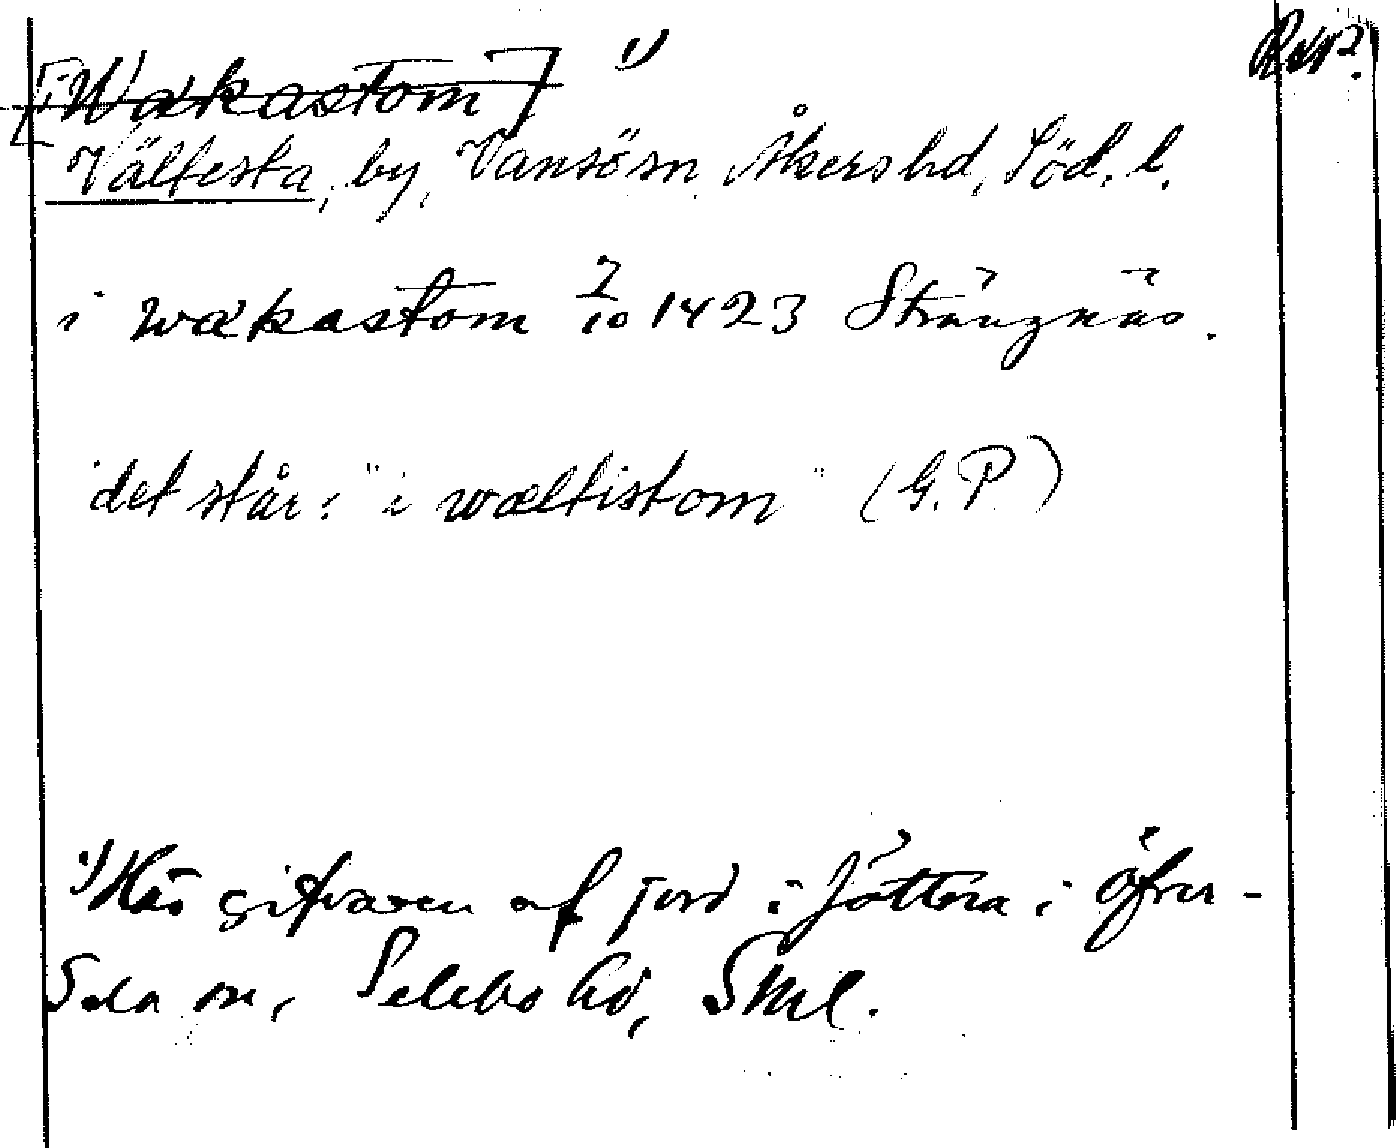 [Wakastom] 1)
Vältesta, by, Vansösn, Åkers hd, Söd. l.
i wakastom 7/10 1423 Strängnäs.
det står: "i wæltistom" (G.P)
1) Hos gifvaren af jord i Jättna i Öfver-
Sela sn, Selebo hd, Sml.